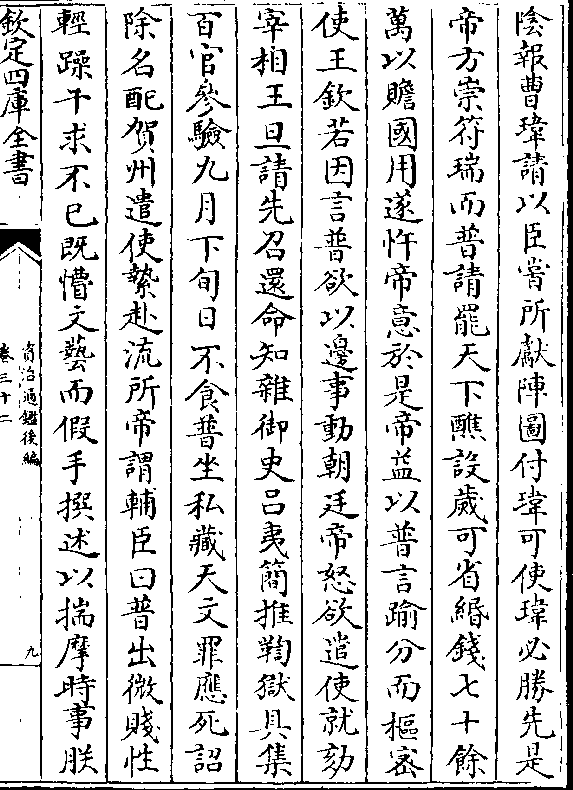 陰報曹瑋請以臣嘗所獻陣圖付瑋可使瑋必勝先是
帝方崇符瑞而普請罷天下醮設歲可省緡錢七十餘
萬以贍國用遂忤帝意於是帝益以普言踰分而樞密
使王欽若因言普欲以邊事動朝廷帝怒欲遣使就劾
宰相王旦請先召還命知雜御史吕夷簡推鞫獄具集
百官參驗九月下旬日不食普坐私藏天文罪應死詔
除名配賀州遣使縶赴流所帝謂輔臣曰普出微賤性
輕躁干求不已既懵文藝而假手撰述以揣摩時事朕
欽定四庫全書
資治通鑑後編
卷三十二
九